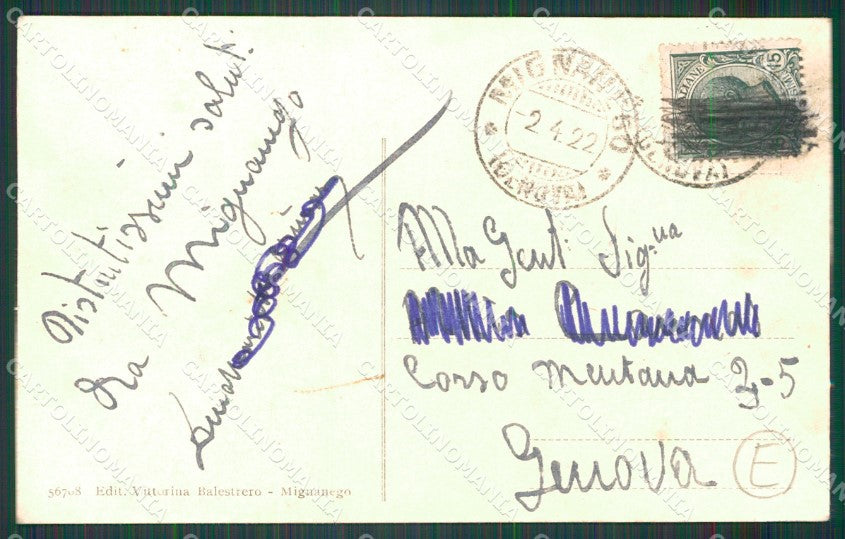 Distintissimi saluti
Da Mignanego
MIGNANEGO
2.4.22
(GENOVA)
15
(GENOVA)
Alla Gent. Sig.na
Corso Mentana 3-5
Genova
E
56708 Edit. Vittorina Balestrero - Mignanego
CARTOLINOMANIA